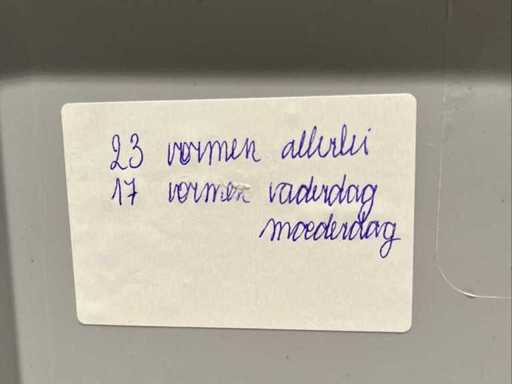 23 vormen allerlei
17 vormen vaderdag
moederdag